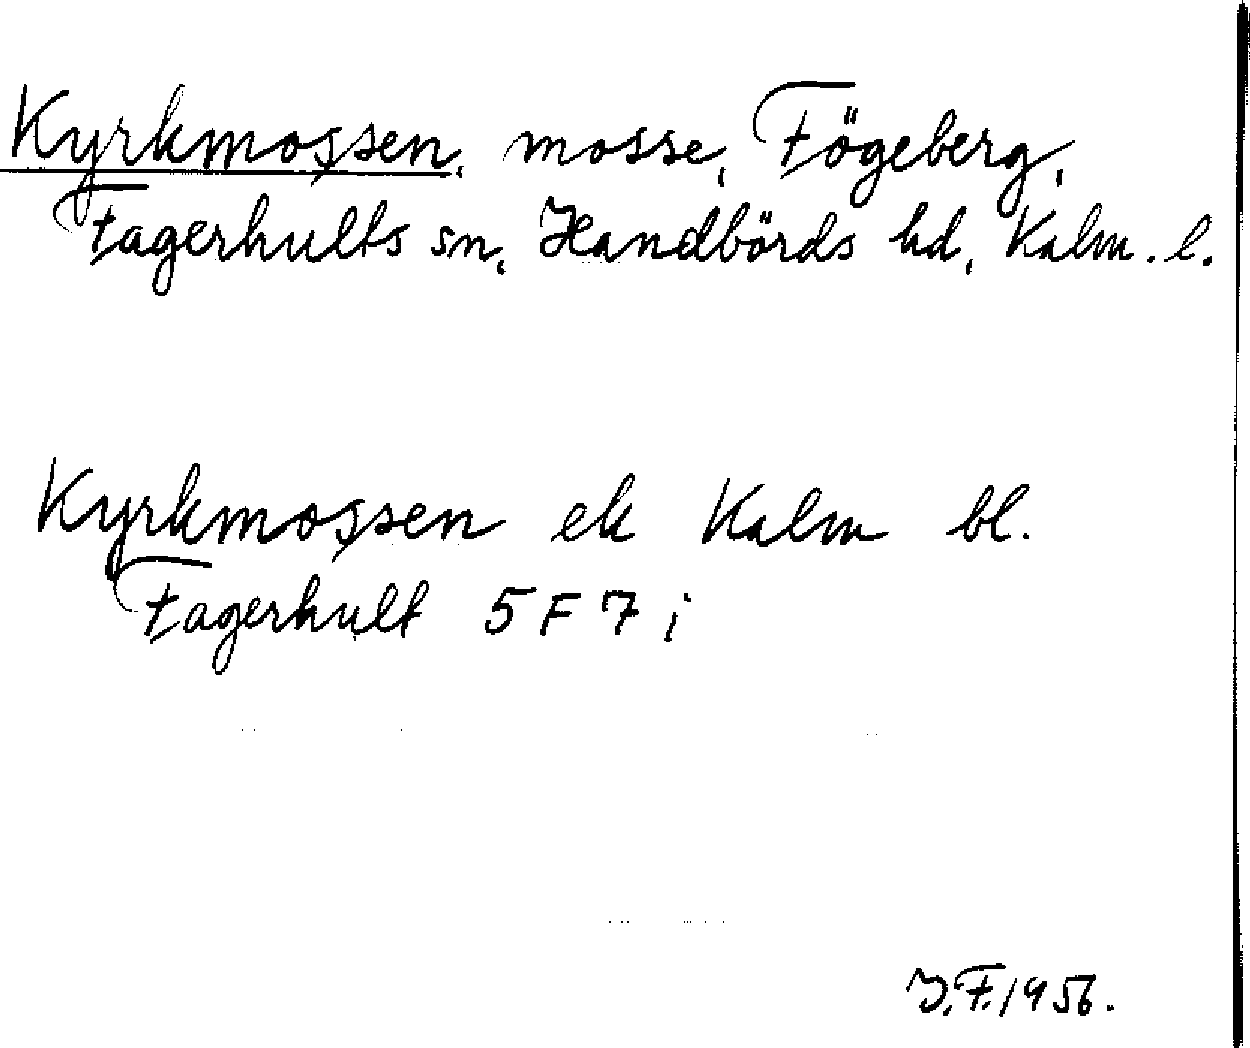 Kyrkmossen, mosse, Fögeberg,
Fagerhults sn, Handbörds hd, Kalm. l.
Kyrkmossen ek Kalm bl.
Fagerhult 5 F 7 i
J.F. 1956.